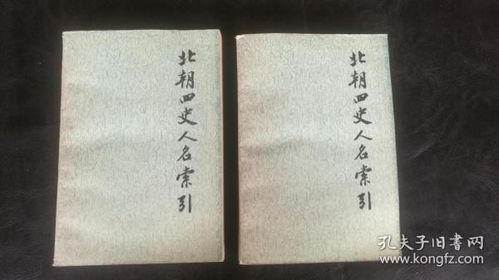 北朝四史人名索引
北朝四史人名索引
孔夫子旧书网
www.kongfz.com